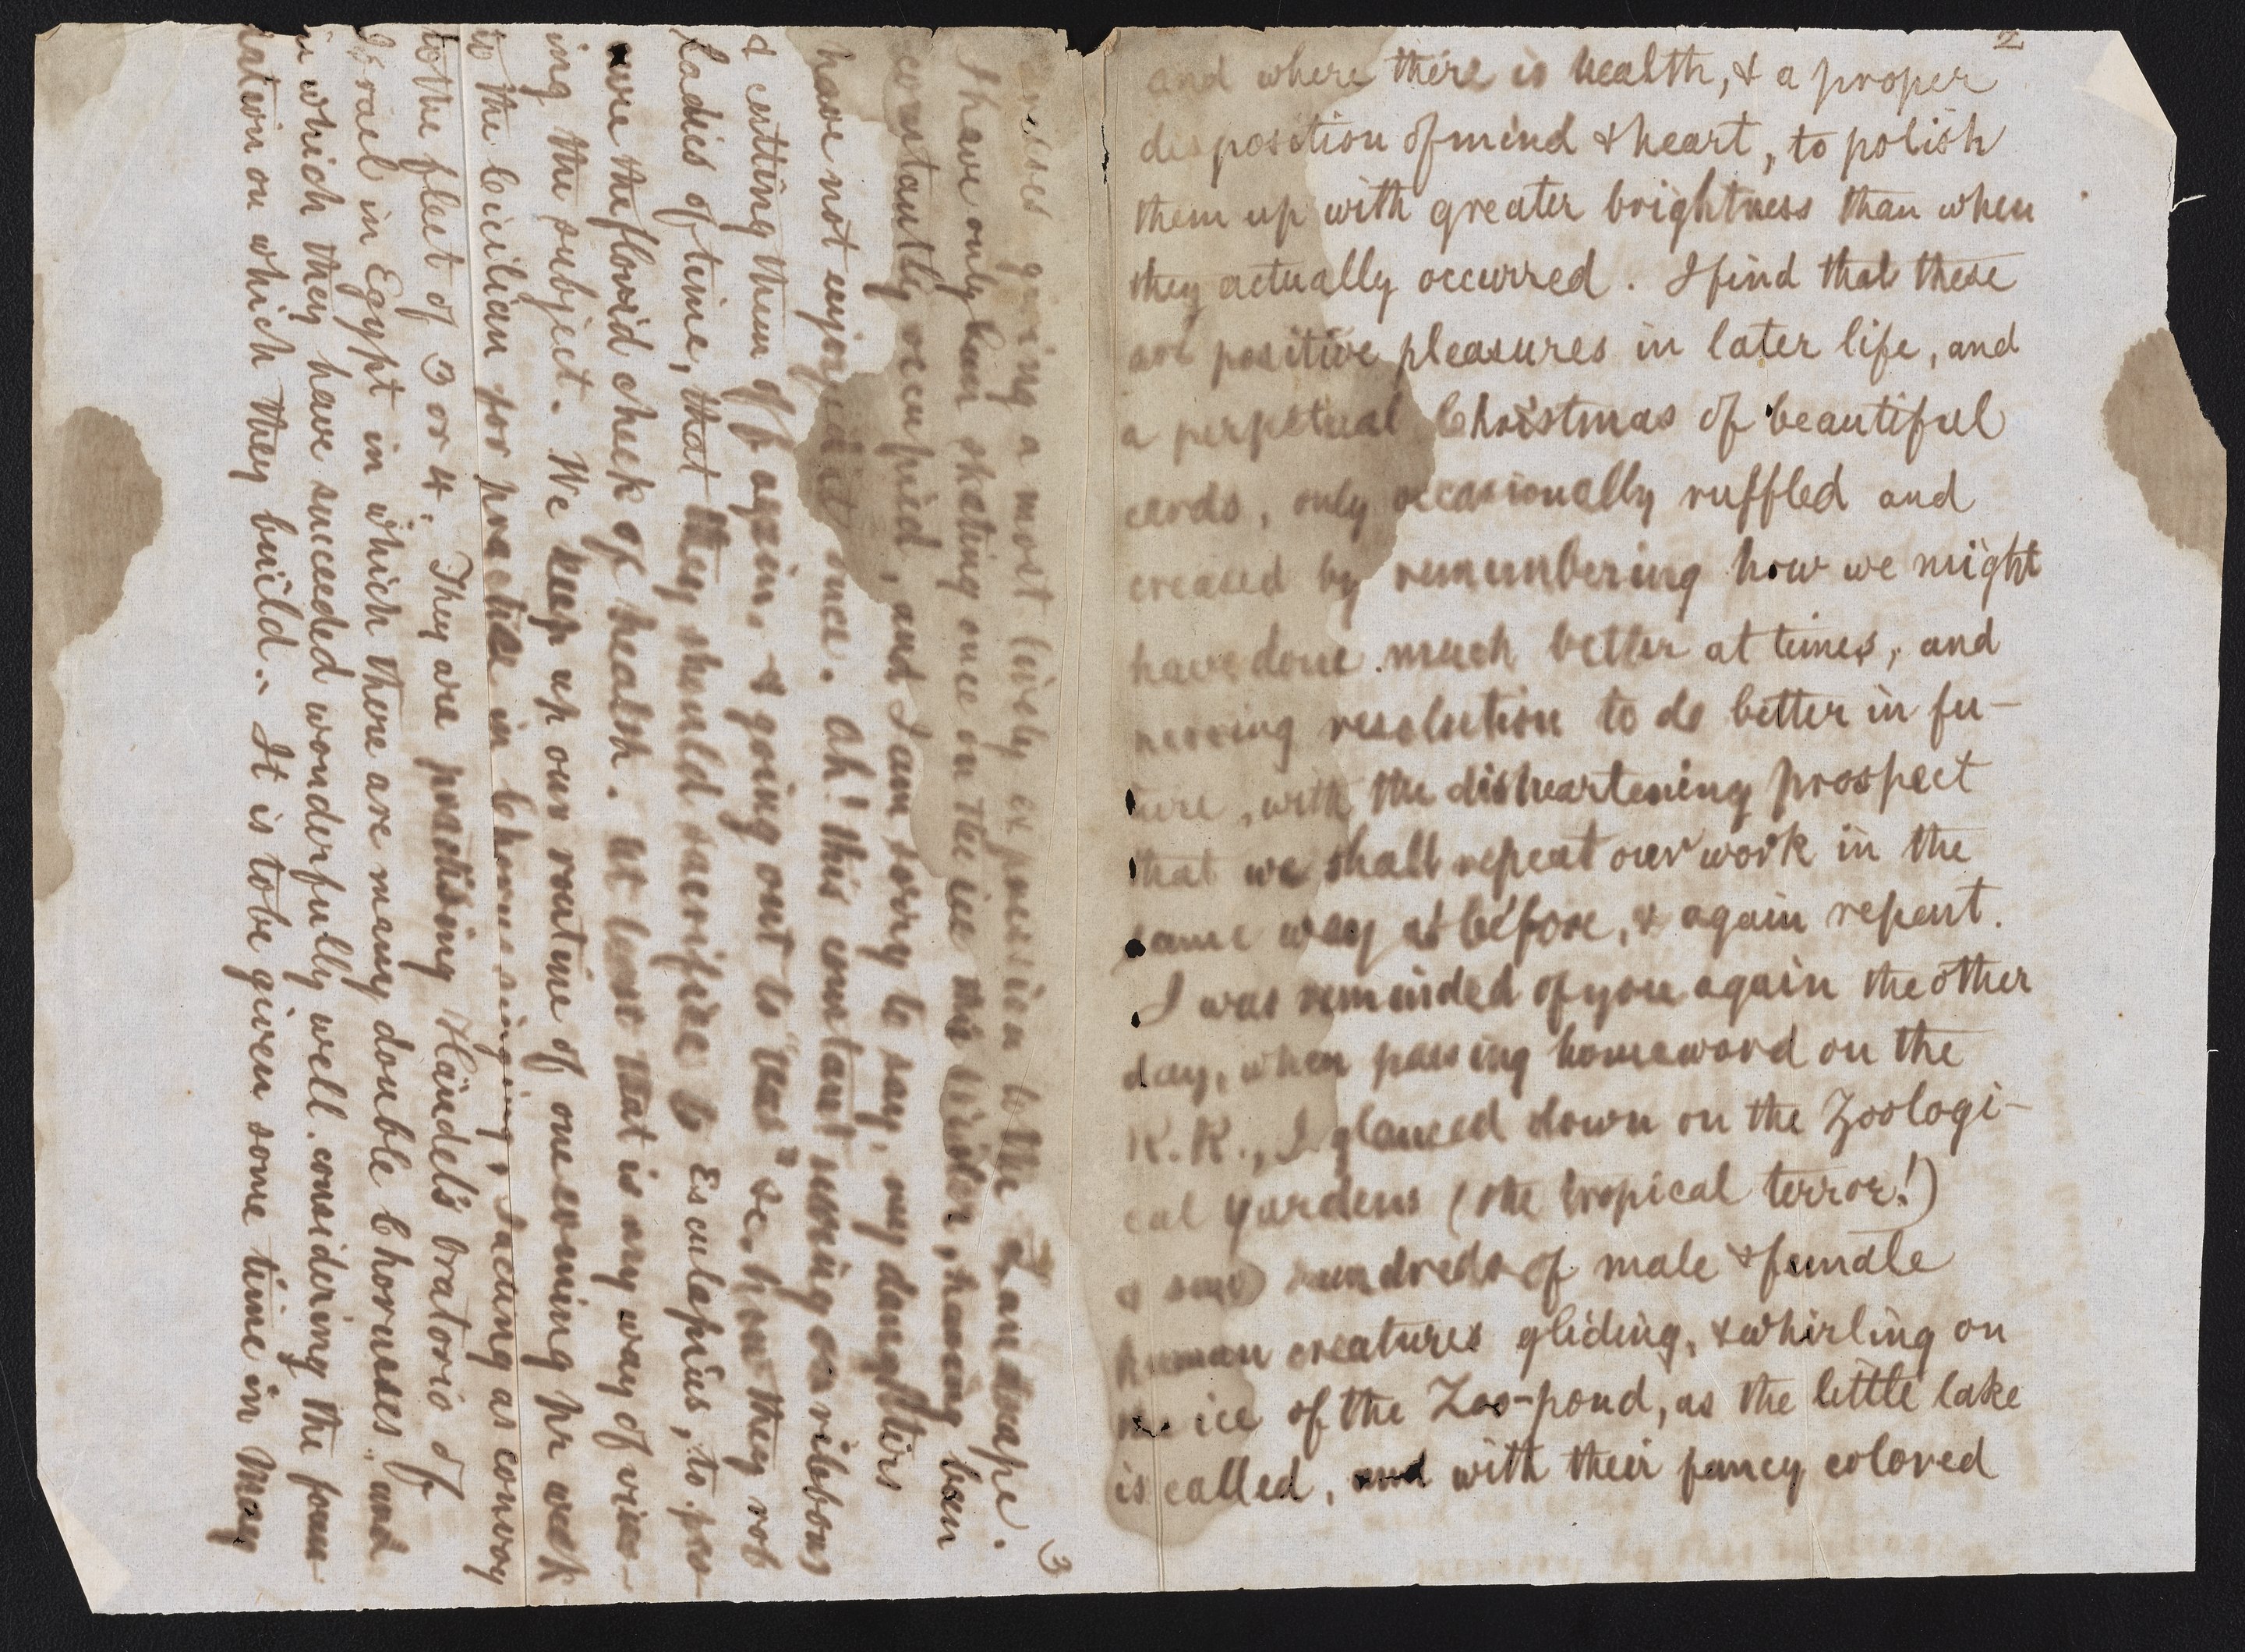 2
and where there is health, & a proper
disposition of mind & heart, to polish
them up with greater brightness than when
they actually occurred. I find that these
are positive pleasures in later life, and
a perpetual Christmas of beautiful
cards, only occasionally ruffled and
creased by remembering how we might
have done much better at times, and
nerving resolution to do better in fu-
ture, with the disheartening prospect
that we shall repeat our work in the
same way as before, & again repent.
I was reminded of you again the other
day, when passing homeward on the
R.R., I glanced down on the Zoologi-
cal gardens (the tropical terror!)
& saw hundreds of male & female
human creatures gliding, & whirling on
the ice of the Zoo-pond, as the little lake
is called, and with their fancy colored
3
dresses giving a most lively expression to the landscape.
I have only been skating once on the ice this winter, having been
constantly occupied, and I am sorry to say, my daughters
have not enjoyed it once. Ah! this constant using on ribbons
& cutting them off again, & going out to "teas" &c. how they rob
ladies of time, that they should sacrifice to Esculapius, to pre-
serve the florid cheek of health. At least that is my way of view-
ing the subject. We keep up our routine of one evening pr week
to the Cicilian for practice in Chorus singing, I acting as convoy
to the fleet of 3 or 4. They are practising Händel's Oratorio of
Israel in Egypt in which there are many double Choruses and
in which they have succeeded wonderfully well considering the foun-
dation on which they build. It is to be given some time in May